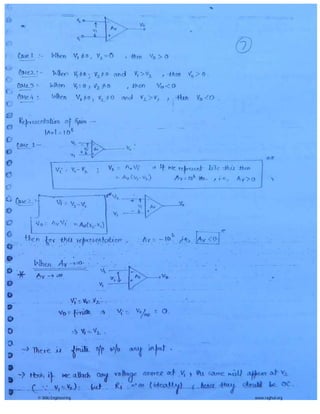 V₀
Aᵥ
7
Case 1 :- When V₁≠0, V₂=0, then V₀>0
Case 2 :- When V₁≠0, V₂≠0 and V₁>V₂, then V₀>0.
Case 3 :- When V₁=0, V₂≠0, then V₀<0
Case 4 :- When V₁≠0, V₂≠0 and V₂>V₁, then V₀<0
Representation of Gain -
|Aᵥ| = 10⁶
Case 1 :-
Vᵢ = V₁-V₂ ; V₀ = AᵥVᵢ If we represent like this then
= Aᵥ(V₁-V₂) Aᵥ>0
Case 2 :-
Vᵢ = V₂-V₁
V₀ = AᵥVᵢ = Aᵥ(V₂-V₁)
then for this representation, Aᵥ = -10⁶ Aᵥ<0
When Aᵥ→∞
* Aᵥ→∞
Vᵢ = V₁-V₂
V₀ = finite ⇒ Vᵢ = V₀/∞ = 0.
⇒ V₁=V₂.
→ There is finite o/p w/o any input.
→ Here, if we attach any voltage source at V₁, the same will appear at V₂
(∵ V₁=V₂); but Rᵢ = ∞ (ideally), hence they should be OC.
© Wiki Engineering www.raghul.org